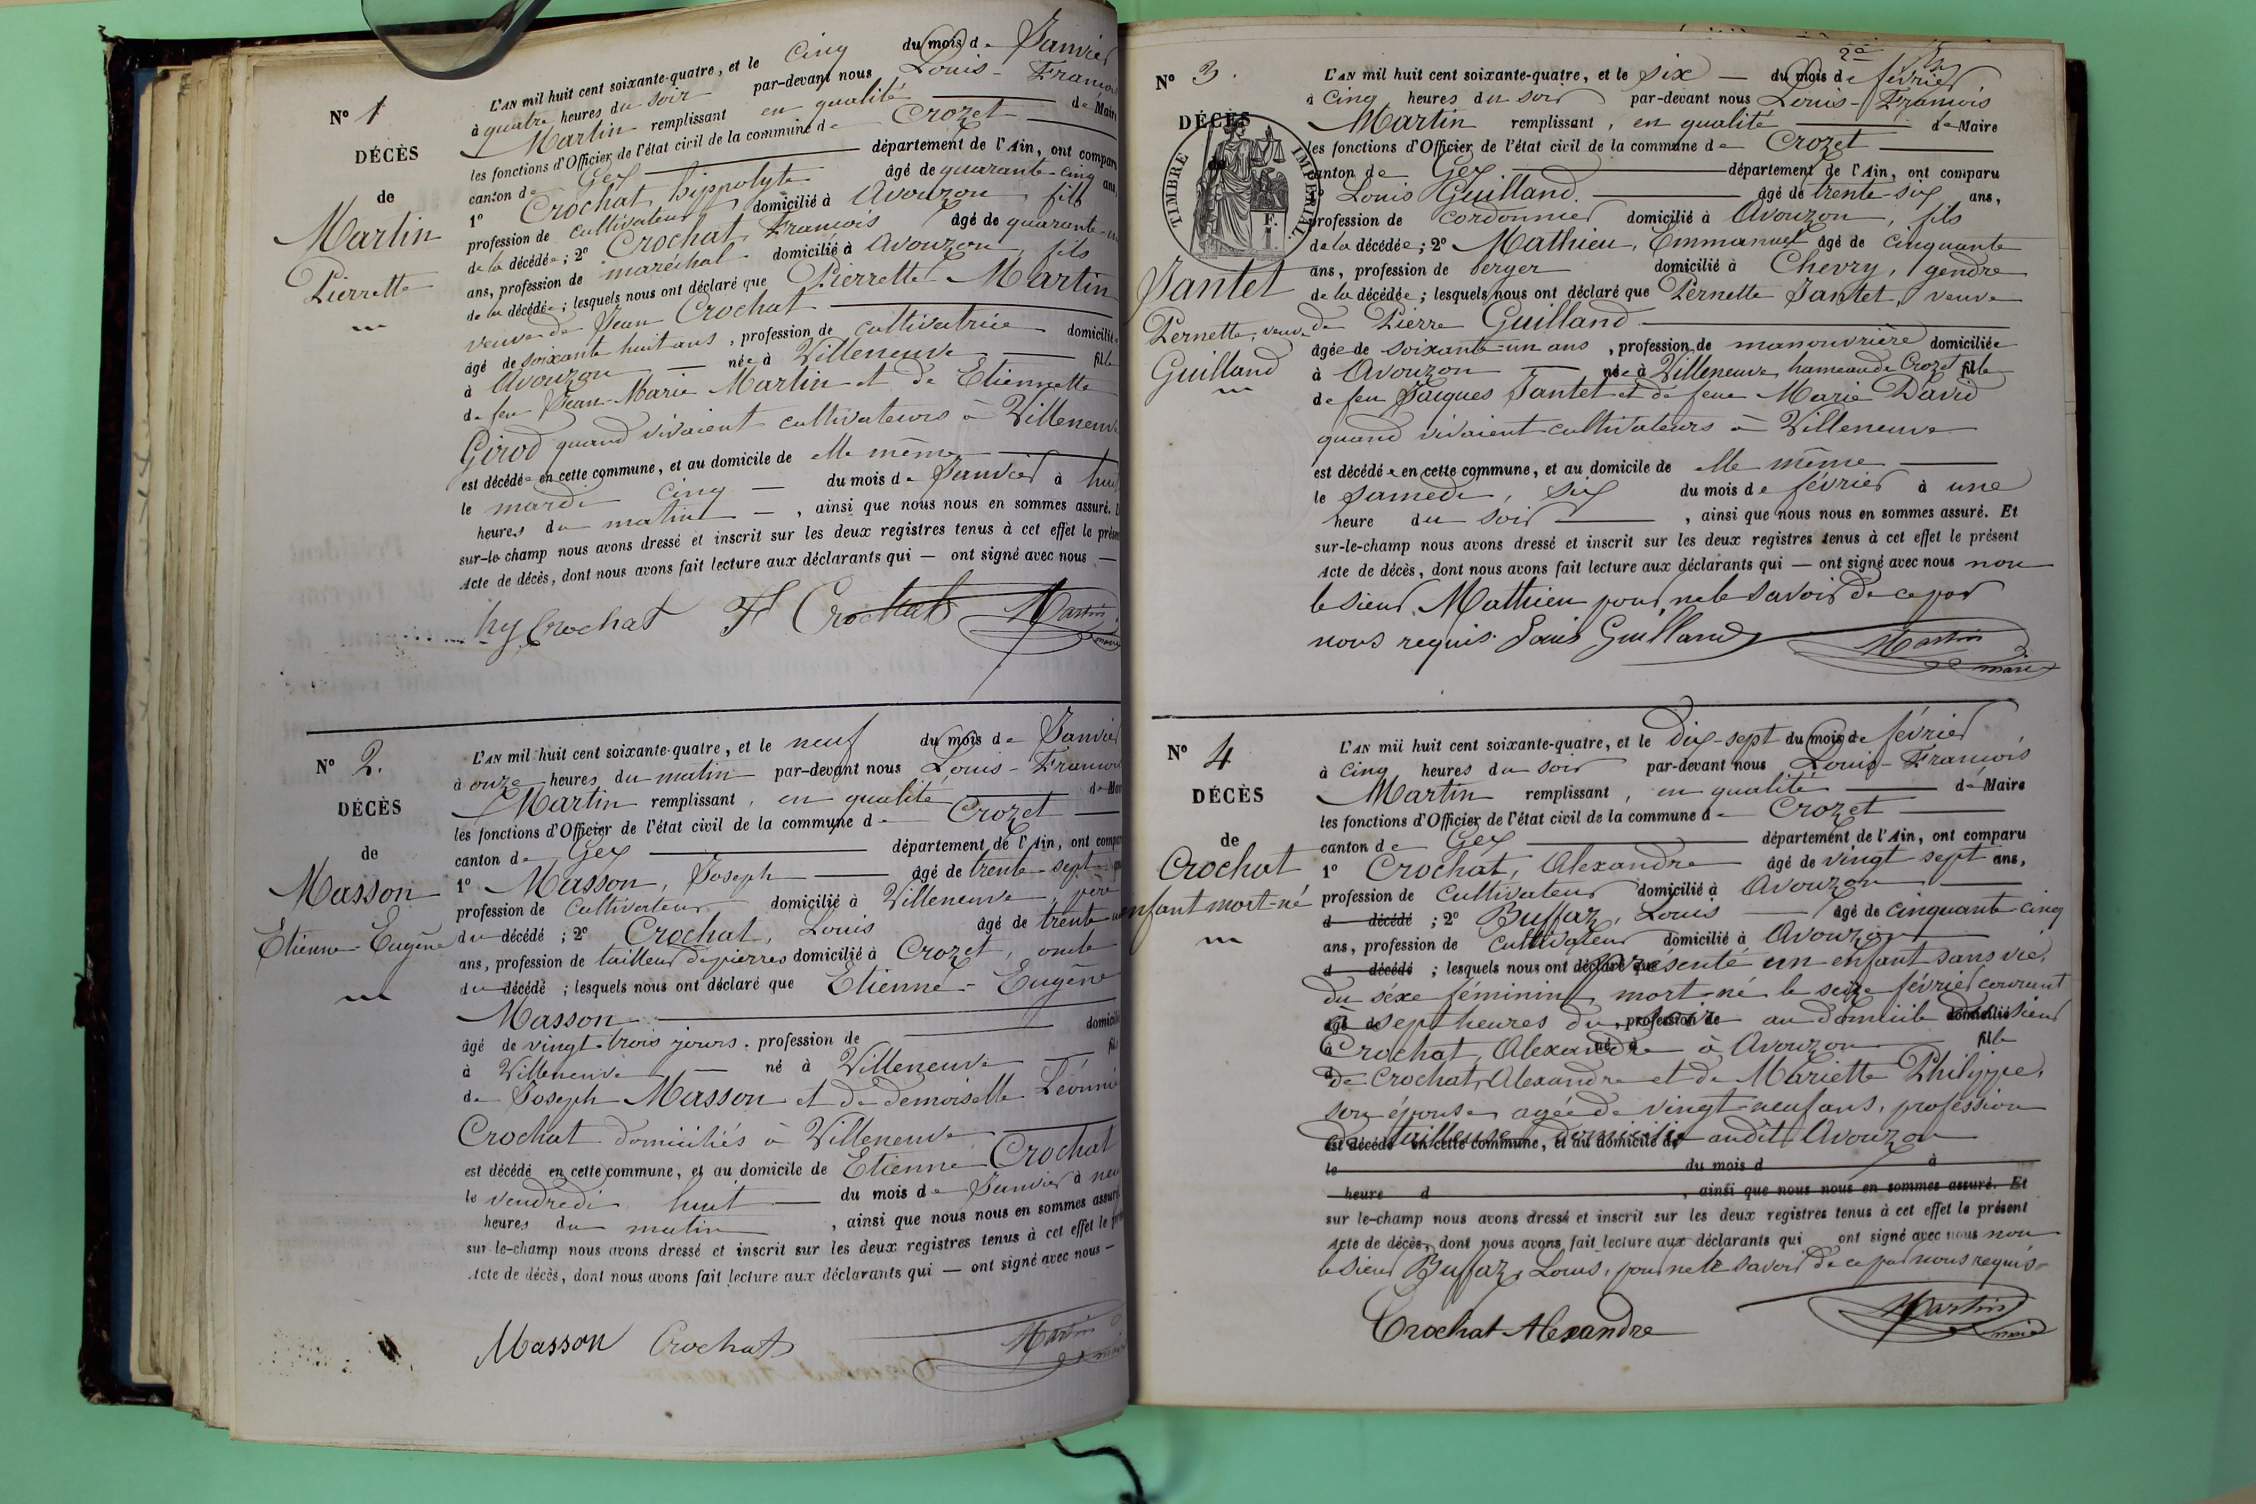 N° 1
DÉCÈS
de
Martin
Pierrette
L'AN mil huit cent soixante-quatre, et le cinq du mois de Janvier
à quatre heures du soir par-devant nous Louis-François
Martin remplissant en qualité de Maire
les fonctions d'Officier de l'état civil de la commune de Crozet
canton de Gex département de l'Ain, ont comparu
1° Crochat hippolyte âgé de quarante-cinq ans,
profession de cultivateur domicilié à Avouzon, fils
de la décédée; 2° Crochat, François âgé de quarante-un
ans, profession de maréchal domicilié à Avouzon, fils
de la décédée; lesquels nous ont déclaré que Pierrette Martin
veuve de Jean Crochat
âgé de soixante huit ans, profession de cultivatrice domiciliée
à Avouzon née à Villeneuve fille
de feu Jean-Marie Martin et de Etiennette
Girod quand vivaient cultivateurs à Villeneuve
est décédée en cette commune, et au domicile de elle même
le mardi cinq du mois de Janvier à huit
heures du matin, ainsi que nous nous en sommes assuré. Et
sur-le-champ nous avons dressé et inscrit sur les deux registres tenus à cet effet le présent
Acte de décès, dont nous avons fait lecture aux déclarants qui — ont signé avec nous —
hy Crochat F Crochat Martin
maire
N° 2.
DÉCÈS
de
Masson
Etienne-Eugène
L'AN mil huit cent soixante-quatre, et le neuf du mois de Janvier
à onze heures du matin par-devant nous Louis-François
Martin remplissant, en qualité de Maire
les fonctions d'Officier de l'état civil de la commune de Crozet
canton de Gex département de l'Ain, ont comparu
1° Masson, Joseph âgé de trente-sept ans
profession de Cultivateur domicilié à Villeneuve, père
du décédé; 2° Crochat, Louis âgé de trente un
ans, profession de tailleur de pierres domicilié à Crozet, oncle
du décédé; lesquels nous ont déclaré que Etienne-Eugène
Masson
âgé de vingt-trois jours. profession de domicilié
à Villeneuve né à Villeneuve fils
de Joseph Masson et de demoiselle Léonnie
Crochat domiciliés à Villeneuve
est décédé en cette commune, et au domicile de Etienne Crochat
le vendredi huit du mois de Janvier à neuf
heures du matin, ainsi que nous nous en sommes assuré
sur-le-champ nous avons dressé et inscrit sur les deux registres tenus à cet effet le présent
Acte de décès, dont nous avons fait lecture aux déclarants qui — ont signé avec nous —
Masson Crochat Martin
maire
2e
N° 3.
DÉCÈS
de
TIMBRE IMPÉRIAL.
F.
Jantet
Pernette, veuve
Guilland
L'AN mil huit cent soixante-quatre, et le six — du mois de février
à cinq heures du soir par-devant nous Louis-François
Martin remplissant, en qualité de Maire
les fonctions d'Officier de l'état civil de la commune de Crozet
canton de Gex département de l'Ain, ont comparu
1° Louis Guilland. âgé de trente-six ans,
profession de cordonnier domicilié à Avouzon, fils
de la décédée; 2° Mathieu, Emmanuel âgé de cinquante
ans, profession de berger domicilié à Chevry, gendre
de la décédée; lesquels nous ont déclaré que Pernette Jantet, veuve
de Pierre Guilland
âgée de soixante-un ans, profession de manouvrière domiciliée
à Avouzon née à Villeneuve, hameau de Crozet fille
de feu Jacques Jantet et de feue Marie David
quand vivaient cultivateurs à Villeneuve
est décédée en cette commune, et au domicile de elle même
le samedi, six du mois de février à une
heure du soir, ainsi que nous nous en sommes assuré. Et
sur-le-champ nous avons dressé et inscrit sur les deux registres tenus à cet effet le présent
Acte de décès, dont nous avons fait lecture aux déclarants qui — ont signé avec nous non
le sieur Mathieu pour ne le savoir de ce par
nous requis. Louis Guilland Martin
maire
N° 4
DÉCÈS
de
Crochat
enfant mort-né
L'AN mil huit cent soixante-quatre, et le dix-sept du mois de février
à cinq heures du soir par-devant nous Louis-François
Martin remplissant, en qualité de Maire
les fonctions d'Officier de l'état civil de la commune de Crozet
canton de Gex département de l'Ain, ont comparu
1° Crochat, Alexandre âgé de vingt sept ans,
profession de Cultivateur domicilié à Avouzon
d décédé; 2° Buffaz, Louis âgé de cinquante-cinq
ans, profession de cultivateur domicilié à Avouzon
d décédé; lesquels nous ont déclaré que présenté un enfant sans vie,
du séxe féminin, mort-né le seize février courant
âgé de sept heures du soir profession de au domicile domicilié dudit sieur
à Crochat, Alexandre né à à Avouzon fille
de Crochat, Alexandre et de Mariette Philippe,
son épouse, agée de vingt-neuf ans, profession
de tailleuse domiciliée audit Avouzon
est décédé en cette commune, et au domicile de
le du mois d à
heure d, ainsi que nous nous en sommes assuré. Et
sur le-champ nous avons dressé et inscrit sur les deux registres tenus à cet effet le présent
Acte de décès, dont nous avons fait lecture aux déclarants qui ont signé avec nous non
le sieur Buffaz, Louis, pour ne le savoir de ce par nous requis
Crochat Alexandre Martin
maire